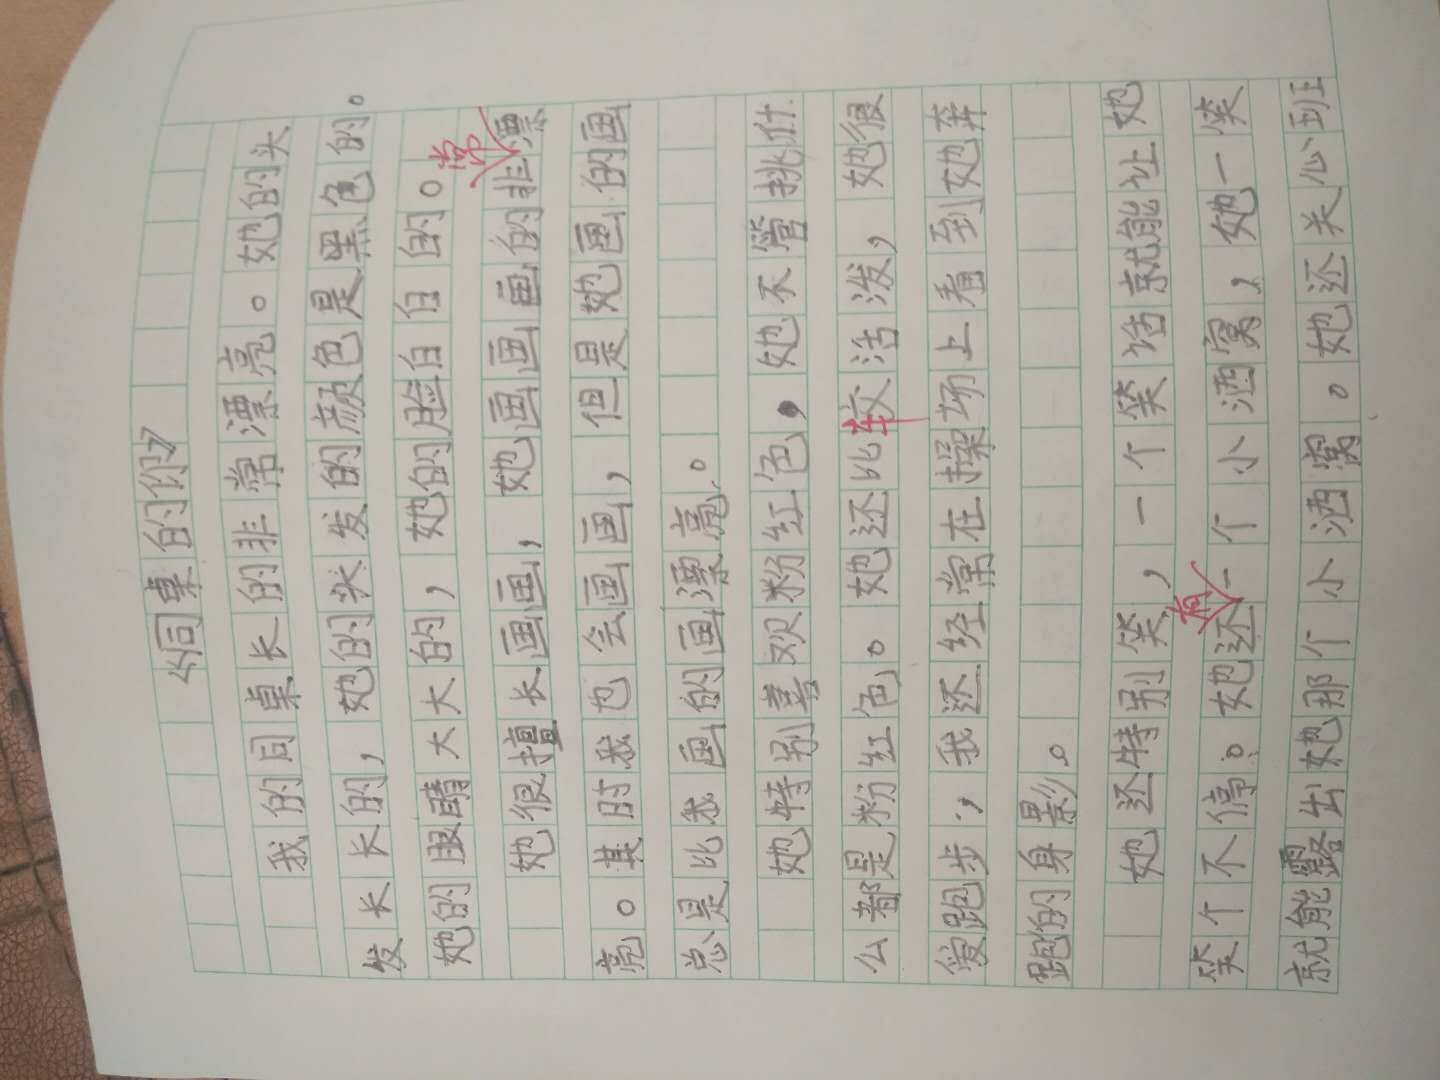 《同桌的你》
我的同桌长的非常漂亮。她的头
发长长的，她的头发的颜色是黑色的。
她的眼睛大大的，她的脸白白的。
她很擅长画画，她画画画的非常漂
亮。其时我也会画画，但是她画的画
总是比我画的画漂亮。
她特别喜欢粉红色，她不管挑什
么都是粉红色。她还比较活泼，她很
爱跑步，我还经常在操场上看到她奔
跑的身影。
她还特别笑，一个笑话就能让她
笑个不停。她还有一个小酒窝，她一笑
就能露出她那个小酒窝。她还关心班